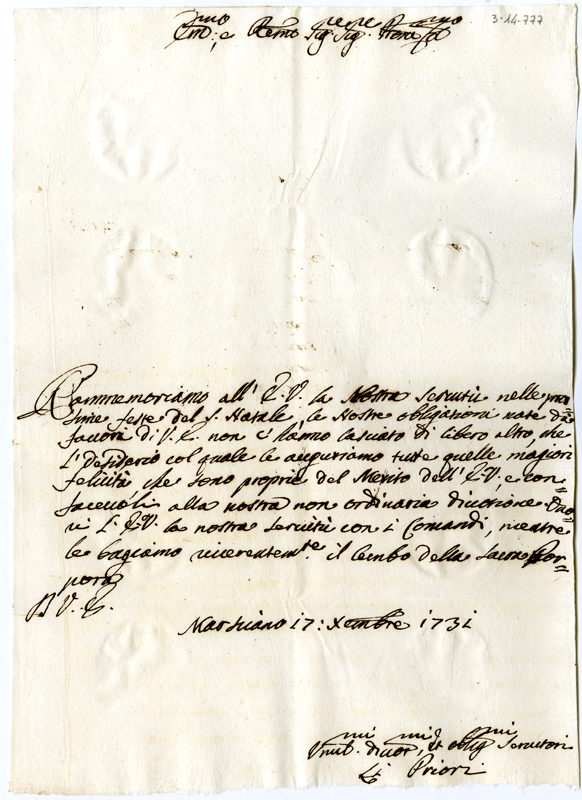 3-14-777
Em:mo e Remo Sig: Sig:
Rammemoriamo all' E.V. la Nostra Servitù nelle pros
sime feste del S. Natale, le Nostre obligationi nate da
favori di V.E. non ci hanno lasciato di libero altro, che
l'Desiderio col quale le auguriamo tutte quelle magiori
felicità che sono proprie del Merito dell'E.V. e con=
facevoli alla nostra non ordinaria divotione. Ono=
ri l'E.V. la nostra servitù con i Comandi, mentre
le bagiamo riverentemte il lembo della Sacra Por=
pora
D V. E.
Marsciano 17: Xembre 1731
Vmil:mi divot:mi, et oblig:mi Servitori
Li Priori